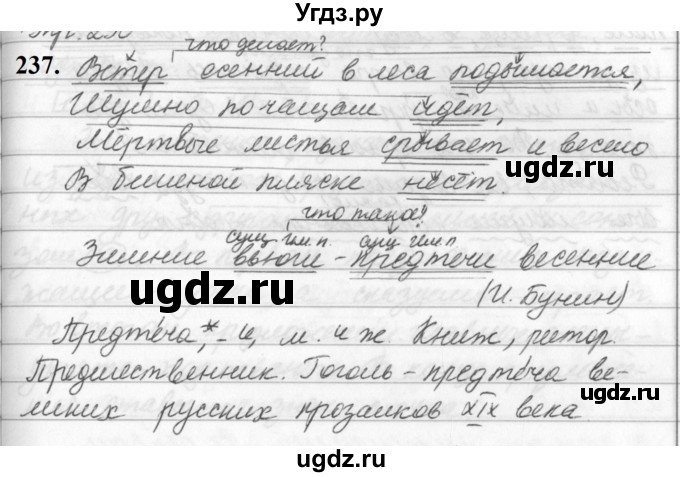 Угдз.ру
Упр. 236
что делает?
237. Ветер осенний в леса подымается,
Шумно по чащам идёт,
Мёртвые листья срывает и весело
В бешеной пляске несёт.
что такое?
сущ. им. п. сущ. им. п.
Зимние вьюги - предтечи весенние
(И. Бунин)
Предтеча,* -и, м. и ж. Книж., ритор.
Предшественник. Гоголь - предтеча ве-
ликих русских прозаиков XIX века.
ugdz.ru
ugdz.ru
ugdz.ru
ugdz.ru
ugdz.ru